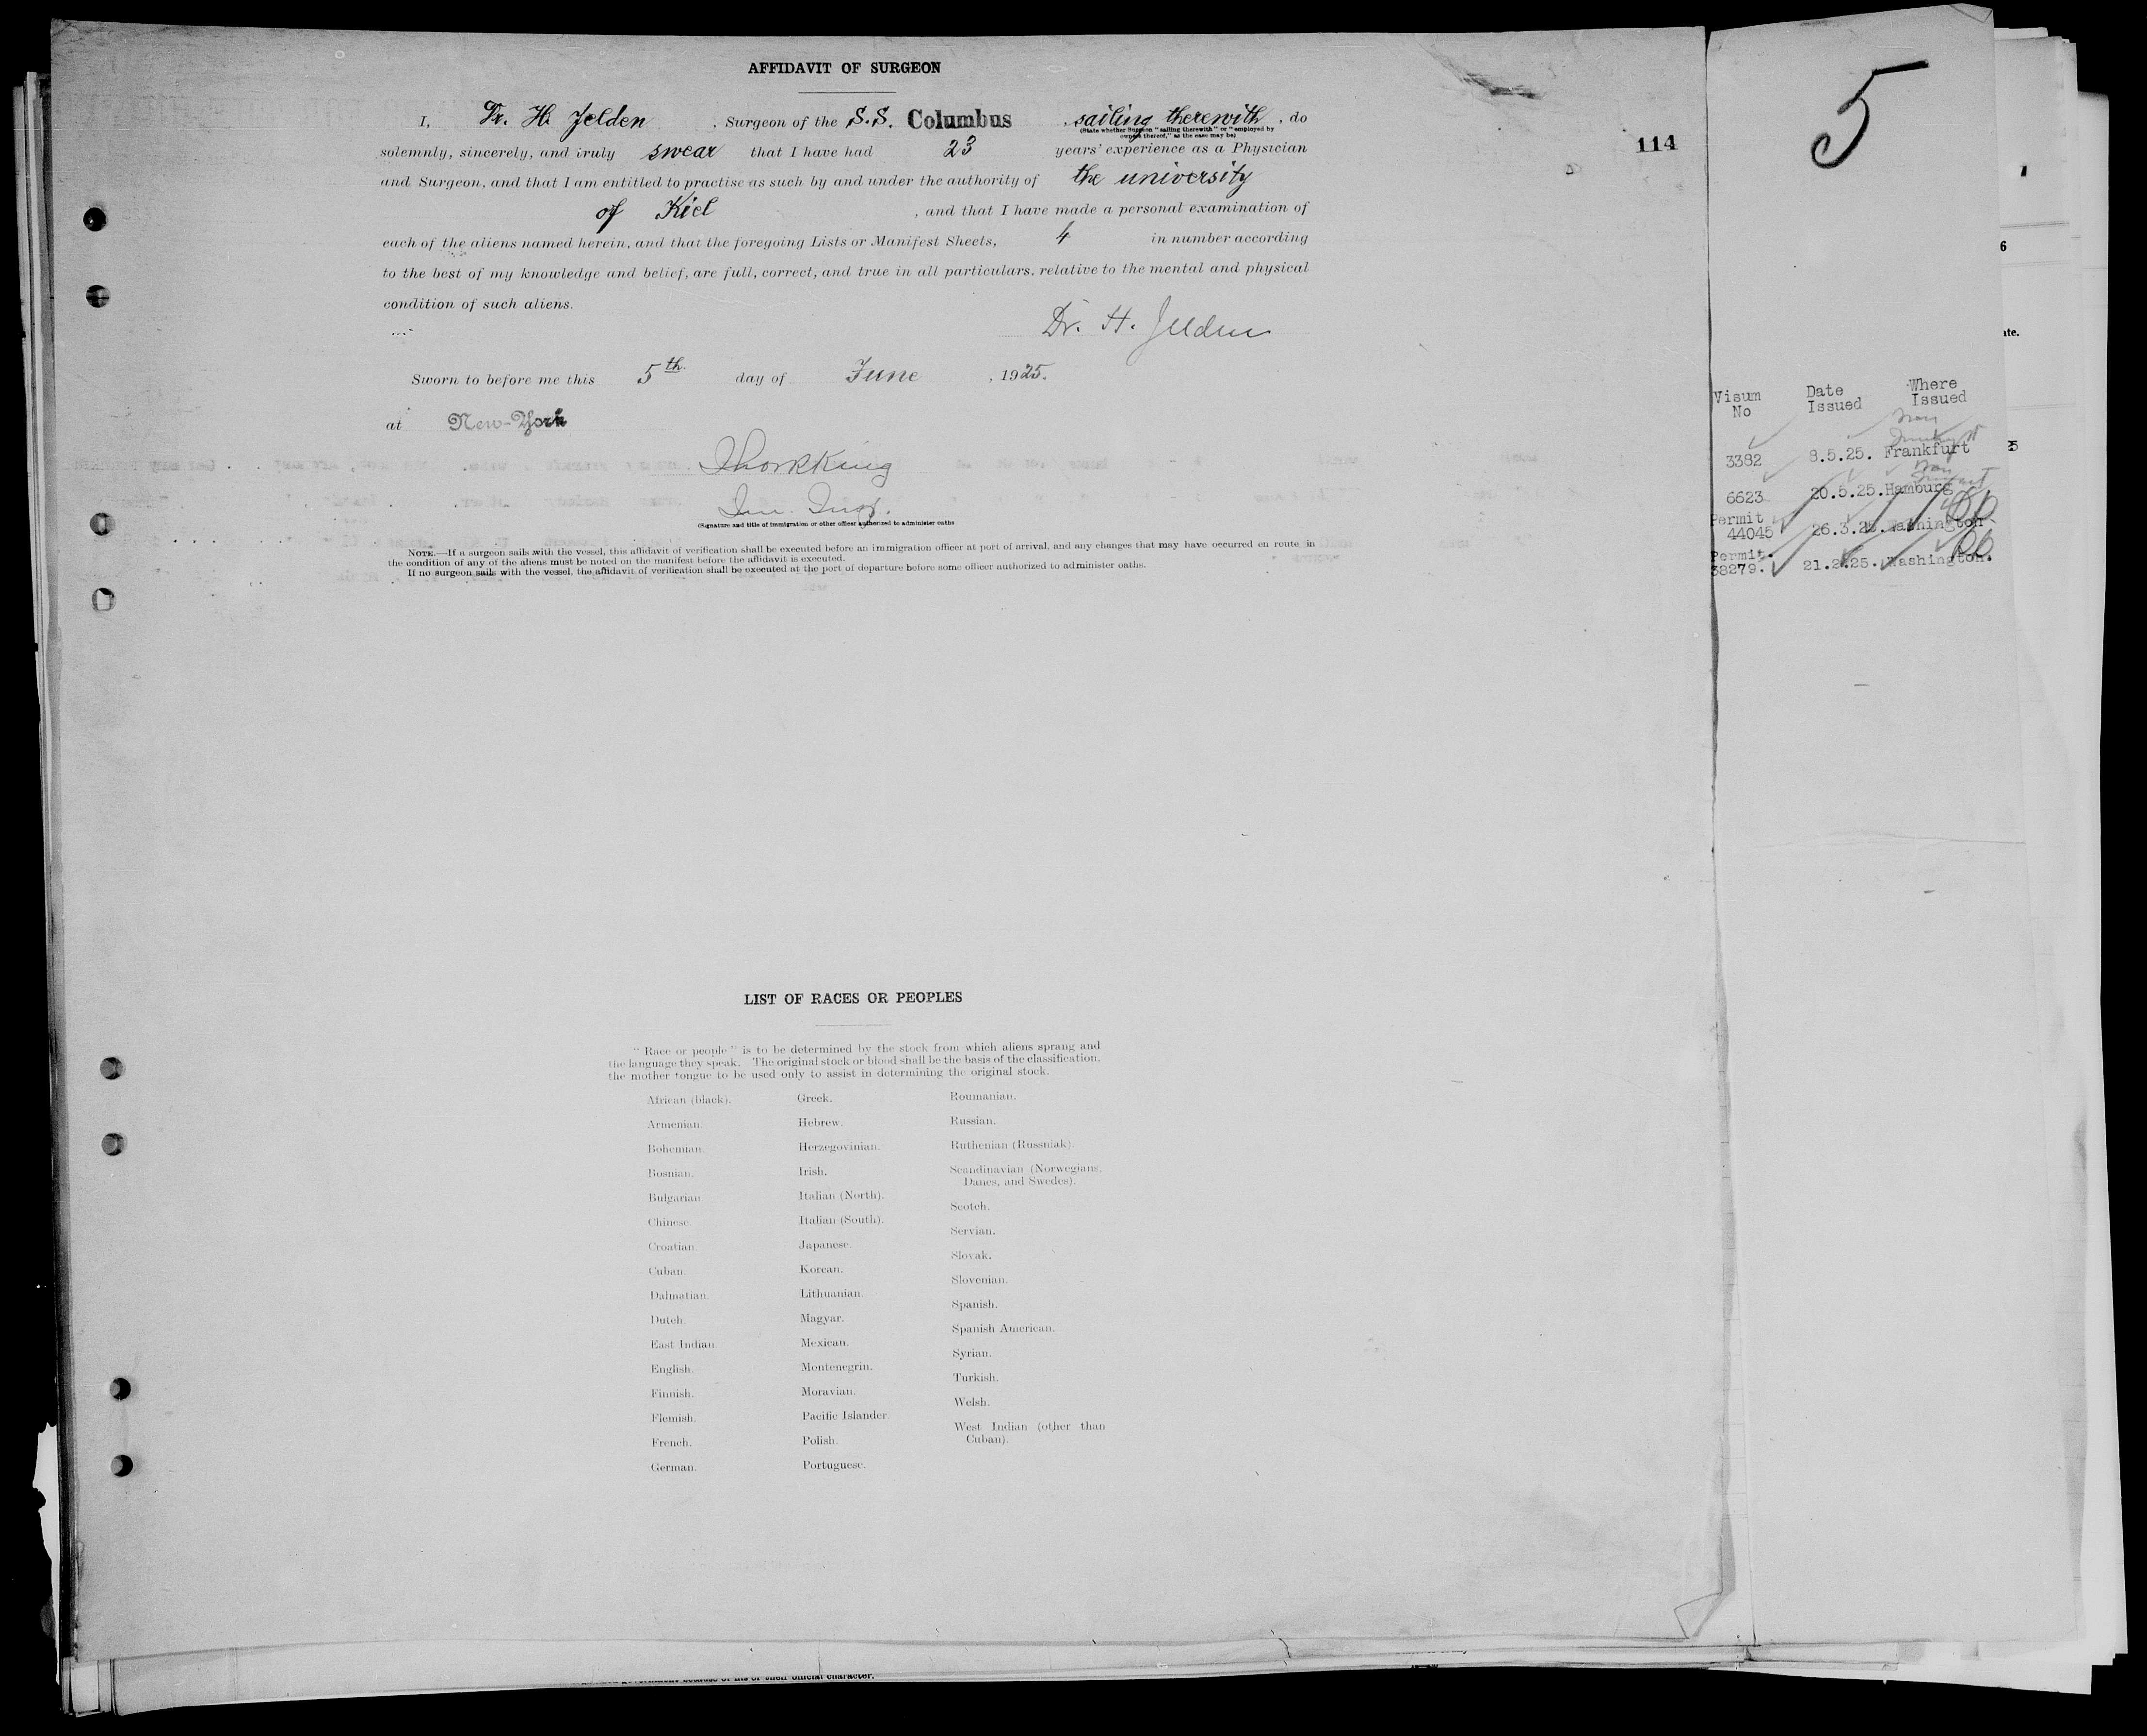 AFFIDAVIT OF SURGEON
I, Dr. H. Jelden, Surgeon of the S.S. Columbus, sailing therewith, do
(State whether Surgeon "sailing therewith" or "employed by
owners thereof," as the case may be)
solemnly, sincerely, and truly swear that I have had 23 years' experience as a Physician
and Surgeon, and that I am entitled to practise as such by and under the authority of the university
of Kiel, and that I have made a personal examination of
each of the aliens named herein, and that the foregoing Lists or Manifest Sheets, 4 in number according
to the best of my knowledge and belief, are full, correct, and true in all particulars, relative to the mental and physical
condition of such aliens.
Dr. H. Jelden
Sworn to before me this 5th day of June, 1925.
at New-York
(Signature and title of immigration or other officer authorized to administer oaths
NOTE.—If a surgeon sails with the vessel, this affidavit of verification shall be executed before an immigration officer at port of arrival, and any changes that may have occurred en route in
the condition of any of the aliens must be noted on the manifest before the affidavit is executed.
If no surgeon sails with the vessel, the affidavit of verification shall be executed at the port of departure before some officer authorized to administer oaths.
114
LIST OF RACES OR PEOPLES
"Race or people" is to be determined by the stock from which aliens sprang and
the language they speak. The original stock or blood shall be the basis of the classification,
the mother tongue to be used only to assist in determining the original stock.
African (black).
Armenian.
Bohemian.
Bosnian.
Bulgarian.
Chinese.
Croatian.
Cuban.
Dalmatian.
Dutch.
East Indian.
English.
Finnish.
Flemish.
French.
German.
Greek.
Hebrew.
Herzegovinian.
Irish.
Italian (North).
Italian (South).
Japanese.
Korean.
Lithuanian.
Magyar.
Mexican.
Montenegrin.
Moravian.
Pacific Islander.
Polish.
Portuguese.
Roumanian.
Russian.
Ruthenian (Russniak).
Scandinavian (Norwegians,
Danes, and Swedes).
Scotch.
Servian.
Slovak.
Slovenian.
Spanish.
Spanish American.
Syrian.
Turkish.
Welsh.
West Indian (other than
Cuban).
5
Visum Date Where
No Issued Issued
3382 8.5.25. Frankfurt
6623 20.5.25. Hamburg
Permit
44045 26.3.25. Washington.
Permit.
38279. 21.2.25. Washington.
6
ate.
of his or their official character.